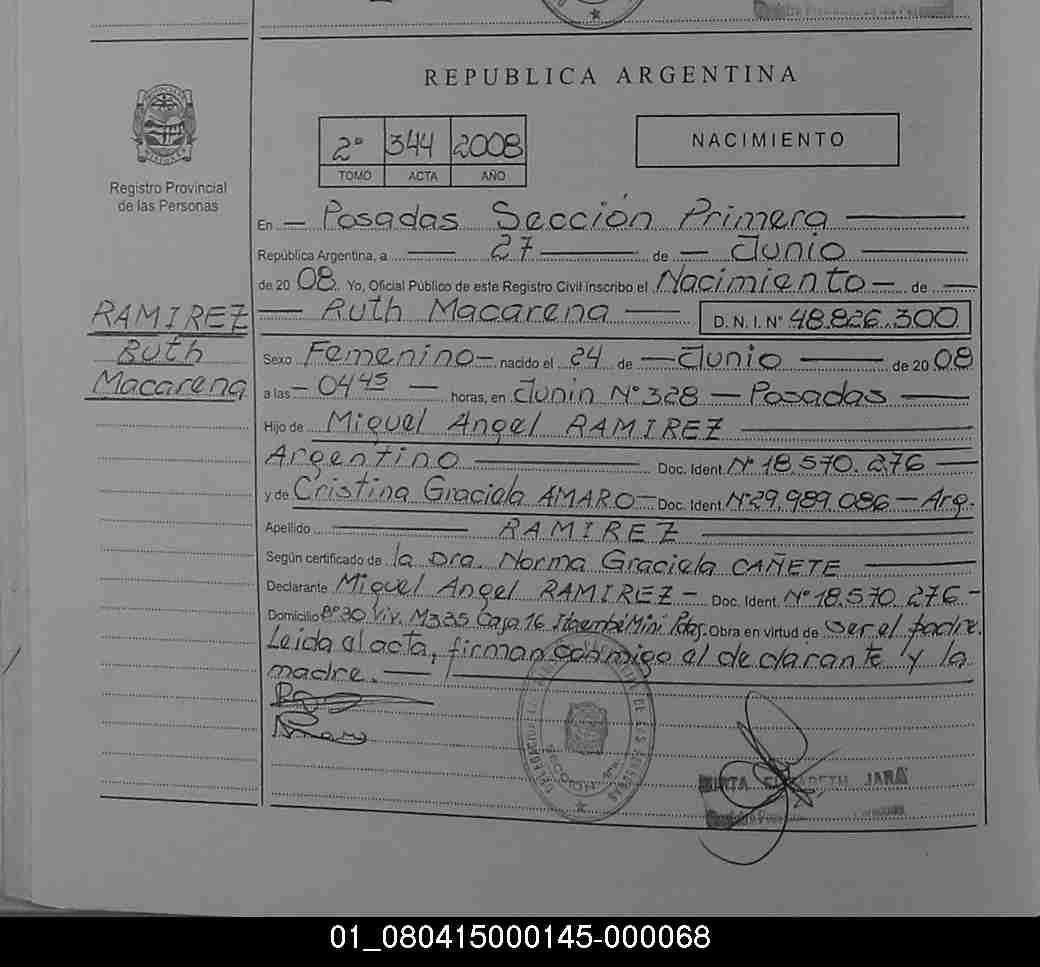 REPUBLICA ARGENTINA
2° 344 2008
TOMO ACTA AÑO
NACIMIENTO
Registro Provincial
de las Personas
En Posadas Sección Primera
República Argentina, a 27 de Junio
de 2008. Yo, Oficial Público de este Registro Civil inscribo el Nacimiento de
Ruth Macarena D.N.I. Nº 48.826.300
RAMIREZ
Ruth
Macarena
Sexo Femenino nacido el 24 de Junio de 2008
a las 04 45 horas, en Junin N° 328 - Posadas
Hijo de Miguel Angel RAMIREZ
Argentino Doc. Ident. N° 18.570.276
y de Cristina Graciela AMARO Doc. Ident. N° 29.989.086 - Arg.
Apellido RAMIREZ
Según certificado de la Dra. Norma Graciela CAÑETE
Declarante Miguel Angel RAMIREZ - Doc. Ident. N° 18.570.276 -
Domicilio B° 30 Viv. Casa 16 Itaembé Mini Pdas. Obra en virtud de ser el padre.
Leida el acta, firman conmigo el declarante y la
madre.
ELIZABETH JARA
01_080415000145-000068